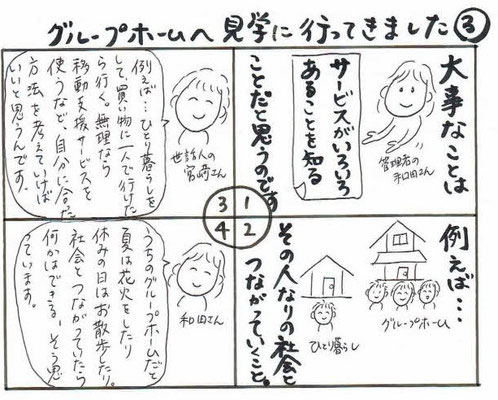 グループホームへ見学に行ってきました③
1
大事なことは
管理者の
和田さん
サービスがいろいろ
あることを知る
ことだと思うのです
2
例えば…
グループホーム
ひとり暮らし
その人なりの社会と
つながっていくこと。
3
世話人の
宮﨑さん
例えば…ひとり暮らしを
して、買い物に一人で行けた
ら行く。無理なら
移動支援サービスを
使うなど、自分に合った
方法を考えていけば
いいと思うんです。
4
和田さん
うちのグループホームだと
夏は花火をしたり
休みの日はお散歩したり。
社会とつながっていたら
何かはできる、そう思っ
ています。